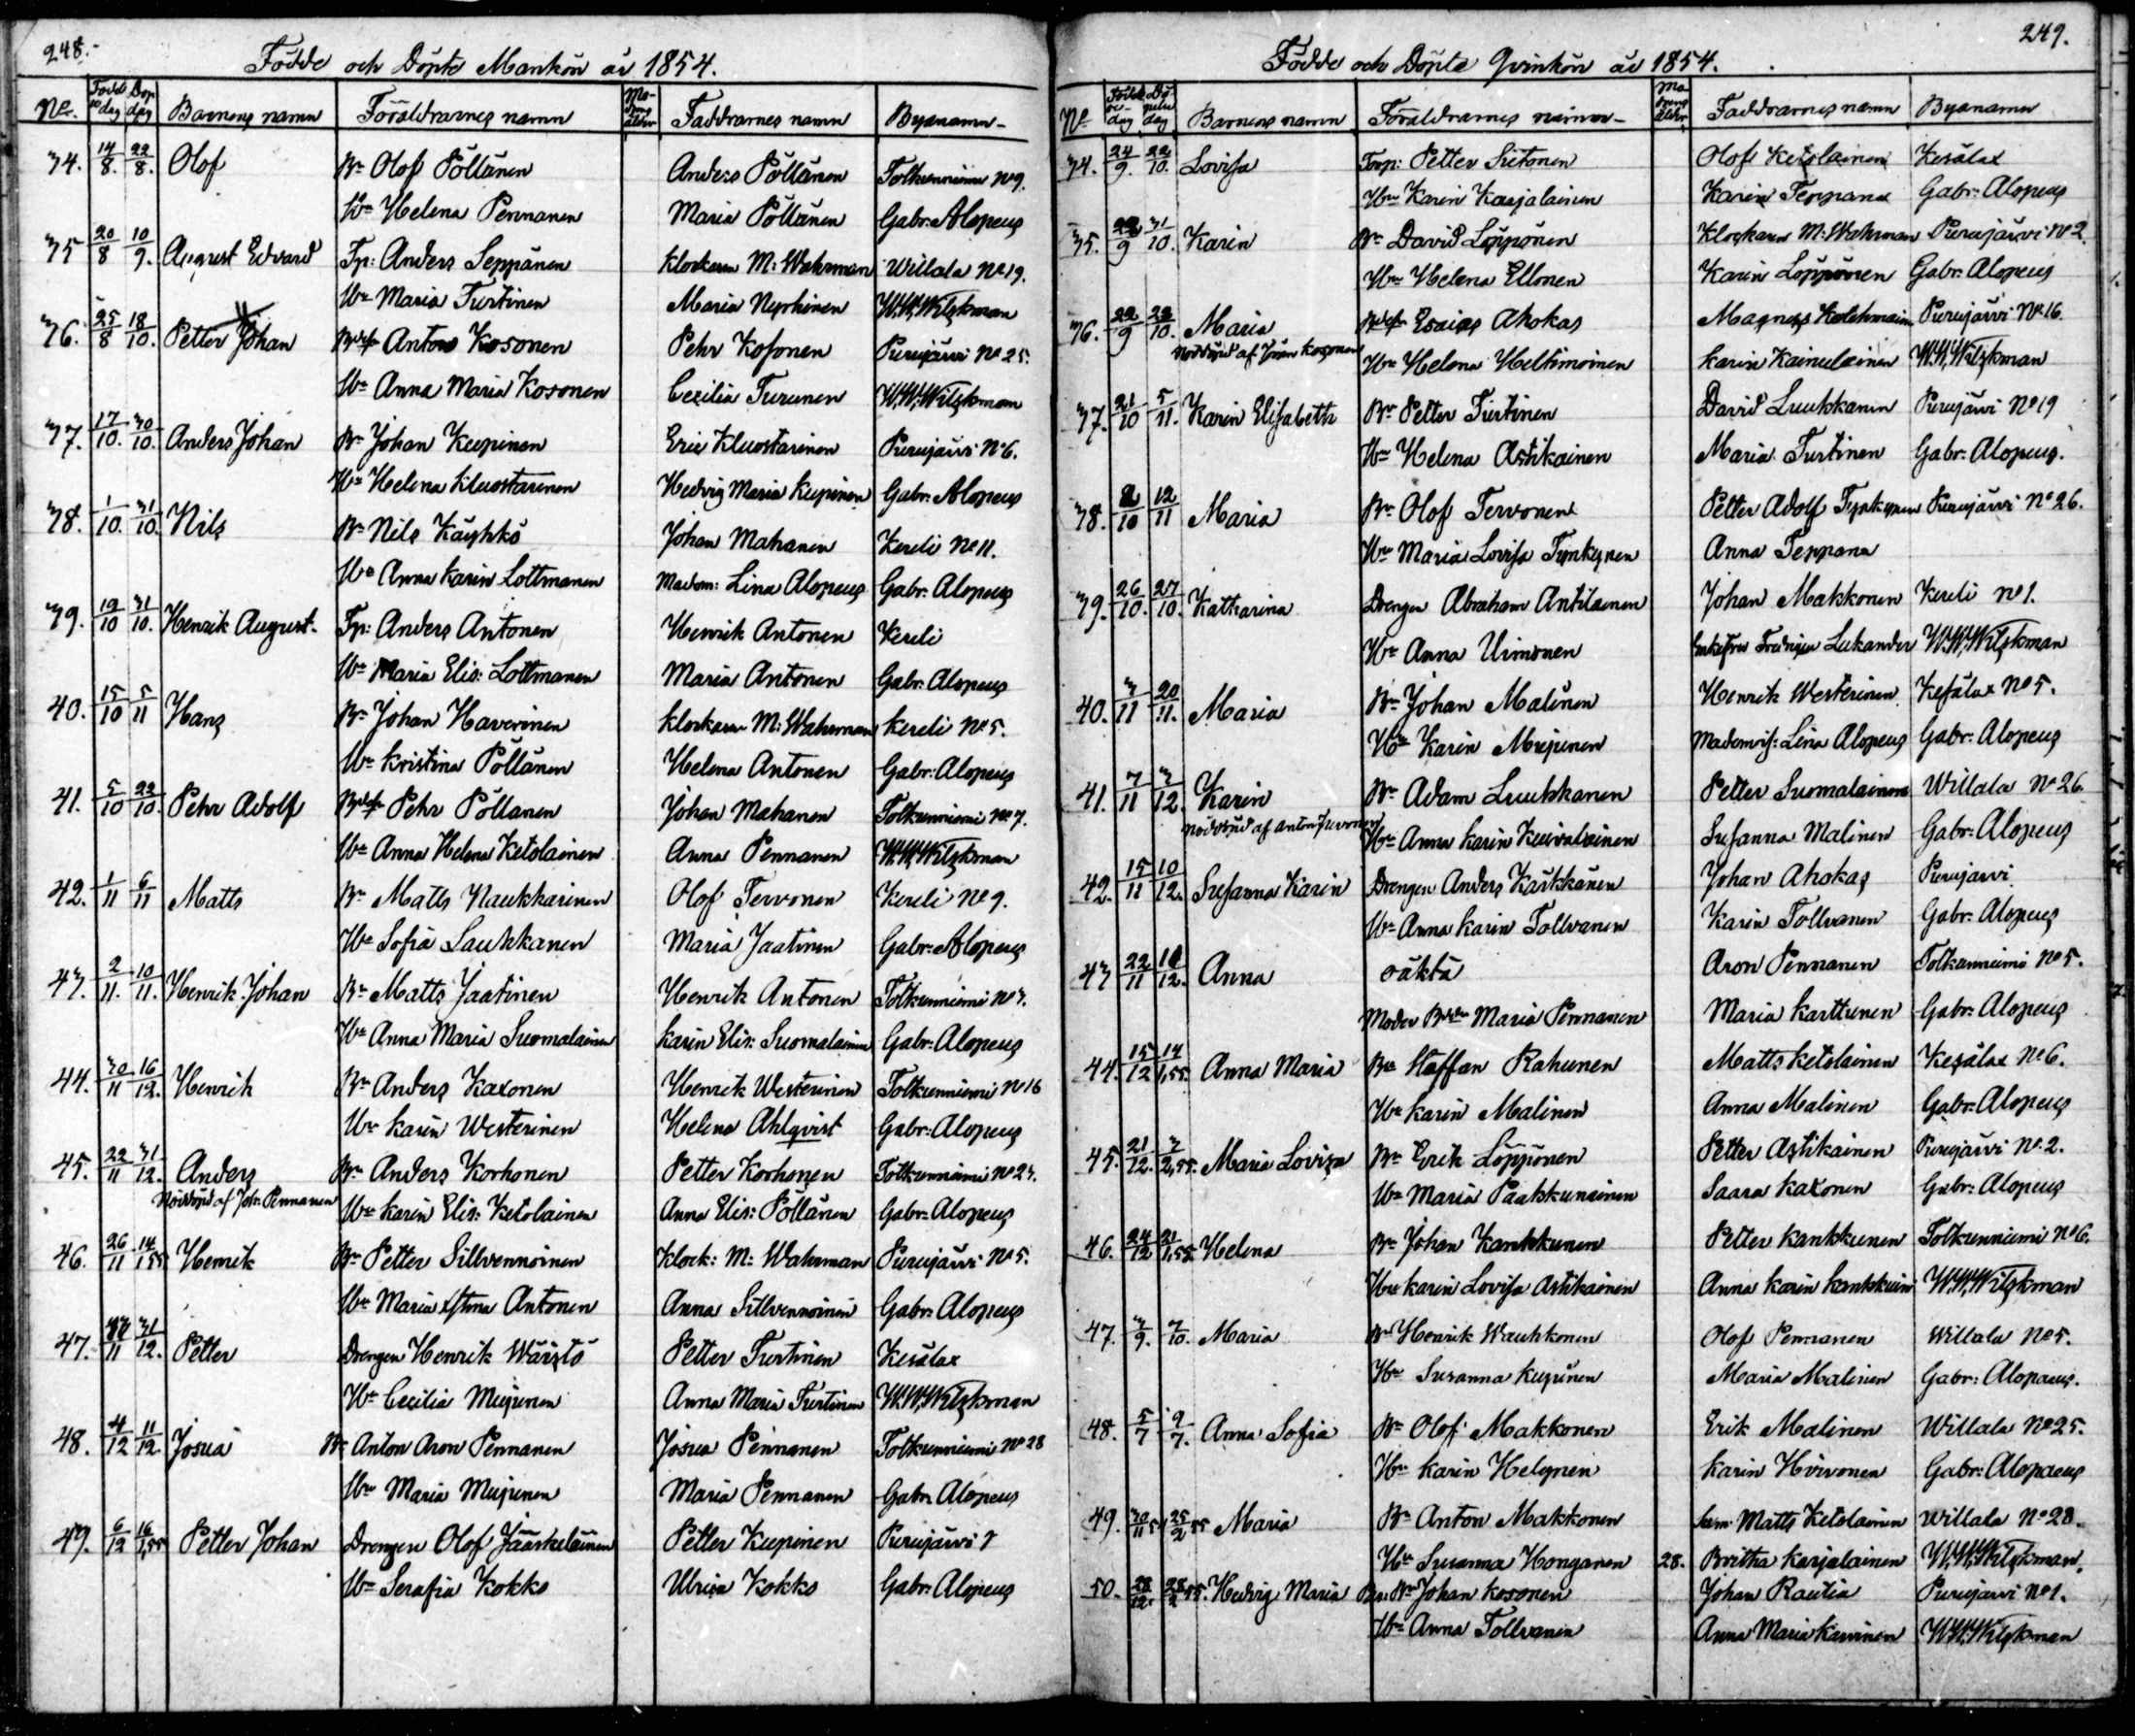 248.
Födde och Döpte Mankön år 1854.
No. Född dag Döp dag Barnens namn Föräldrarnes namn Modrens ålder Faddrarnes namn Byanamn
34. 14/8. 22/8. Olof Bn Olof Pöllänen Anders Pöllänen Tolkunniemi No 9.
Hu Helena Pennanen Maria Pöllänen Gabr: Alopeus
35 20/8 10/9. August Edvard Tp: Anders Seppänen Klockaren M: Wahrman Willala No 19.
Hu Maria Turtinen Maria Nyyrhinen W.W. Witzkman
36. 25/8 18/10. Petter Johan Anton Kosonen Pehr Kosonen Purujärvi No 25.
Hu Anna Maria Kosonen Cecilia Turunen W.W. Witzkman
37. 17/10. 30/10. Anders Johan Bn Johan Kupinen Eric Kluostarinen Purujärvi No 6.
Hu Helena Kluostarinen Hedvig Maria Kupinen Gabr: Alopeus
38. 1/10. 31/10. Nils Bn Nils Käyhkö Johan Mahanen Kereli No 11.
Hu Anna Karin Lottmanen Madem: Lina Alopeus Gabr: Alopeus
39. 19/10 31/10. Henrik August. Tp: Anders Antonen Henrik Antonen Kereli
Hu Maria Elis: Lottmanen Maria Antonen Gabr: Alopeus
40. 15/10 5/11 Hans Bn Johan Haverinen Klockaren M: Wahrman Kereli No 5.
Hu Kristina Pöllänen Helena Antonen Gabr: Alopeus
41. 5/10 22/10. Pehr Adolf Pehr Pöllänen Johan Mahanen Tolkunniemi No 7.
Hu Anna Helena Ketolainen Anna Pennanen W.W. Witzkman
42. 1/11 6/11 Matts Bn Matts Naukkarinen Olof Tervonen Kereli No 9.
Hu Sofia Laukkanen Maria Jaatinen Gabr: Alopeus
43. 2/11. 10/11. Henrik Johan Bn Matts Jaatinen Henrik Antonen Tolkunniemi No 3.
Hu Anna Maria Suomalainen Karin Elis: Suomalainen Gabr: Alopeus
44. 30/11 16/12. Henrik Bn Anders Kaxonen Henrik Westerinen Tolkunniemi No 16
Hu Karin Westerinen Helena Ahlqvist Gabr: Alopeus
45. 22/11 31/12. Anders Bn Anders Korhonen Petter Korhonen Tolkunniemi No 23.
Nöddöpt af Joh: Pennanen Hu Karin Elis: Ketolainen Anna Elis: Pöllänen Gabr: Alopeus
46. 26/11 14/1,55 Henrik Bn Petter Sillvennoinen Klock: M: Wahrman Purujärvi No 5.
Hu Maria Stina Antonen Anna Sillvennoinen Gabr: Alopeus
47. /11 31/12. Petter Drengen Henrik Wäistö Petter Turtinen Kesälax
Hu Cecilia Mujunen Anna Maria Turtinen W.W. Witzkman
48. 4/12 11/12. Josua Bn Anton Aron Pennanen Josua Pennanen Tolkunniemi No 28
Hu Maria Mujunen Maria Pennanen Gabr: Alopeus
49. 6/12 16/1,55 Petter Johan Drengen Olof Jääskeläinen Petter Kupinen Purujärvi 7
Hu Serafia Kokko Ulrica Kokko Gabr: Alopeus
249.
Födde och Döpta Qvinkön år 1854.
No Födelse-dag Döpelsedag Barnens namn Föräldrarnes namn Modrens ålder Faddrarnes namn Byanamn
34. 24/9. 22/10. Lovisa Torp: Petter Sutonen Olof Ketolainen Kesälax
Hu Karin Karjalainen Karin Teppana Gabr: Alopeus
35. 22/9 31/10. Karin Bn David Löppönen Klockaren M: Wahrman Purujärvi No 2.
Hu Helena Ellonen Karin Löppönen Gabr: Alopeus
36. 22/9 22/10. Maria Esaias Ahokas Magnus Kolehmain Purujärvi No 16.
Nöddöpt af Kosonen Hu Helena Heltimoinen Karin Kainulainen W.W. Witzkman
37. 21/10 5/11. Karin Elisabeth Bn Petter Turtinen David Luukkanen Purujärvi No 19
Hu Helena Astikainen Maria Turtinen Gabr: Alopeus.
38. 2/10 12/11 Maria Bn Olof Tervonen Petter Adolf Tynkynen Purujärvi No 26.
Hu Maria Lovisa Tynkynen Anna Teppana
39. 26/10. 27/10. Katharina Drengen Abraham Antilainen Johan Makkonen Kereli No 1.
Hu Anna Uimonen Enkefru Lukander W.W. Witzkman
40. 3/11 20/11. Maria Bn Johan Malinen Henrik Westerinen Kesälax No 5.
Hu Karin Mujunen Mademois: Lina Alopeus Gabr: Alopeus
41. 7/11 3/12. Karin Bn Adam Luukkanen Petter Suomalainen Willala No 26.
Nöddöpt af Anton Juvonen Hu Anna Karin Kuivalainen Susanna Malinen Gabr: Alopeus
42. 15/11 10/12. Susanna Karin Drengen Anders Kärkkänen Johan Ahokas Purujarvi.
Hu Anna Karin Tollvanen Karin Tollvanen Gabr: Alopeus
43 22/11 /12. Anna oäkta Aron Pennanen Tolkunniemi No 5.
Moder Maria Pennanen Maria Karttunen Gabr: Alopeus
44. 15/12 14/1,55. Anna Maria Bn Staffan Rahunen Matts Ketolainen Kesälax No 6.
Hu Karin Malinen Anna Malinen Gabr: Alopeus
45. 21/12. 3/2,55. Maria Loviza Bn Erik Löppönen Petter Astikainen Purujärvi No 2.
Hu Maria Paakkunainen Saara Kaxonen Gabr: Alopeus
46. 24/12 21/1,55 Helena Bn Johan Kankkunen Petter Kankkunen Tolkunniemi No 6.
Hu Karin Lovisa Astikainen Anna Karin Kankkuin W.W. Witzkman
47. 3/9. 7/10. Maria Bn Henrik Waukkonen Olof Pennanen Willala No 5.
Hu Susanna Kupinen Maria Malinen Gabr: Alopaeus.
48. 5/7 9/7. Anna Sofia Bn Olof Makkonen Erik Malinen Willala No 25.
Hu Karin Helynen Karin Hirvonen Gabr: Alopaeus
49. 30/11 54 25/2 55 Maria Bn Anton Makkonen Matts Ketolainen Willala No 28.
Hu Susanna Honganen 28. Britha Karjalainen W.W. Witzkman.
50. 28/12. 28/2 55. Hedvig Maria Bn Johan Kosonen Johan Rautia Purujarvi No 1.
Hu Anna Tollvanen Anna Maria Karvinen W.W. Witzkman